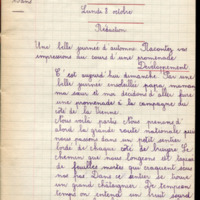 Lundi 8 octobre
Rédaction
Une belle journée d'automne Racontez vos
impressions au cours d'une promenade
Développement
C'est aujourd'hui dimanche. Par une
belle journée ensoleillée papa, maman
ma sœur et moi décidons d'aller faire
une promenade à la campagne du
côté de la Vienne.
Nous voilà partis. Nous prenons d'
abord la grande route nationale puis
nous passons dans un petit sentier
bordé de chaque côté de bruyère. Le
chemin que nous longeons est tapissé
de feuilles mortes qui craquent sous
nos pas. Dans ce sentier se trouve
un grand châtaignier. De temps en
temps on entend un bruit sourd